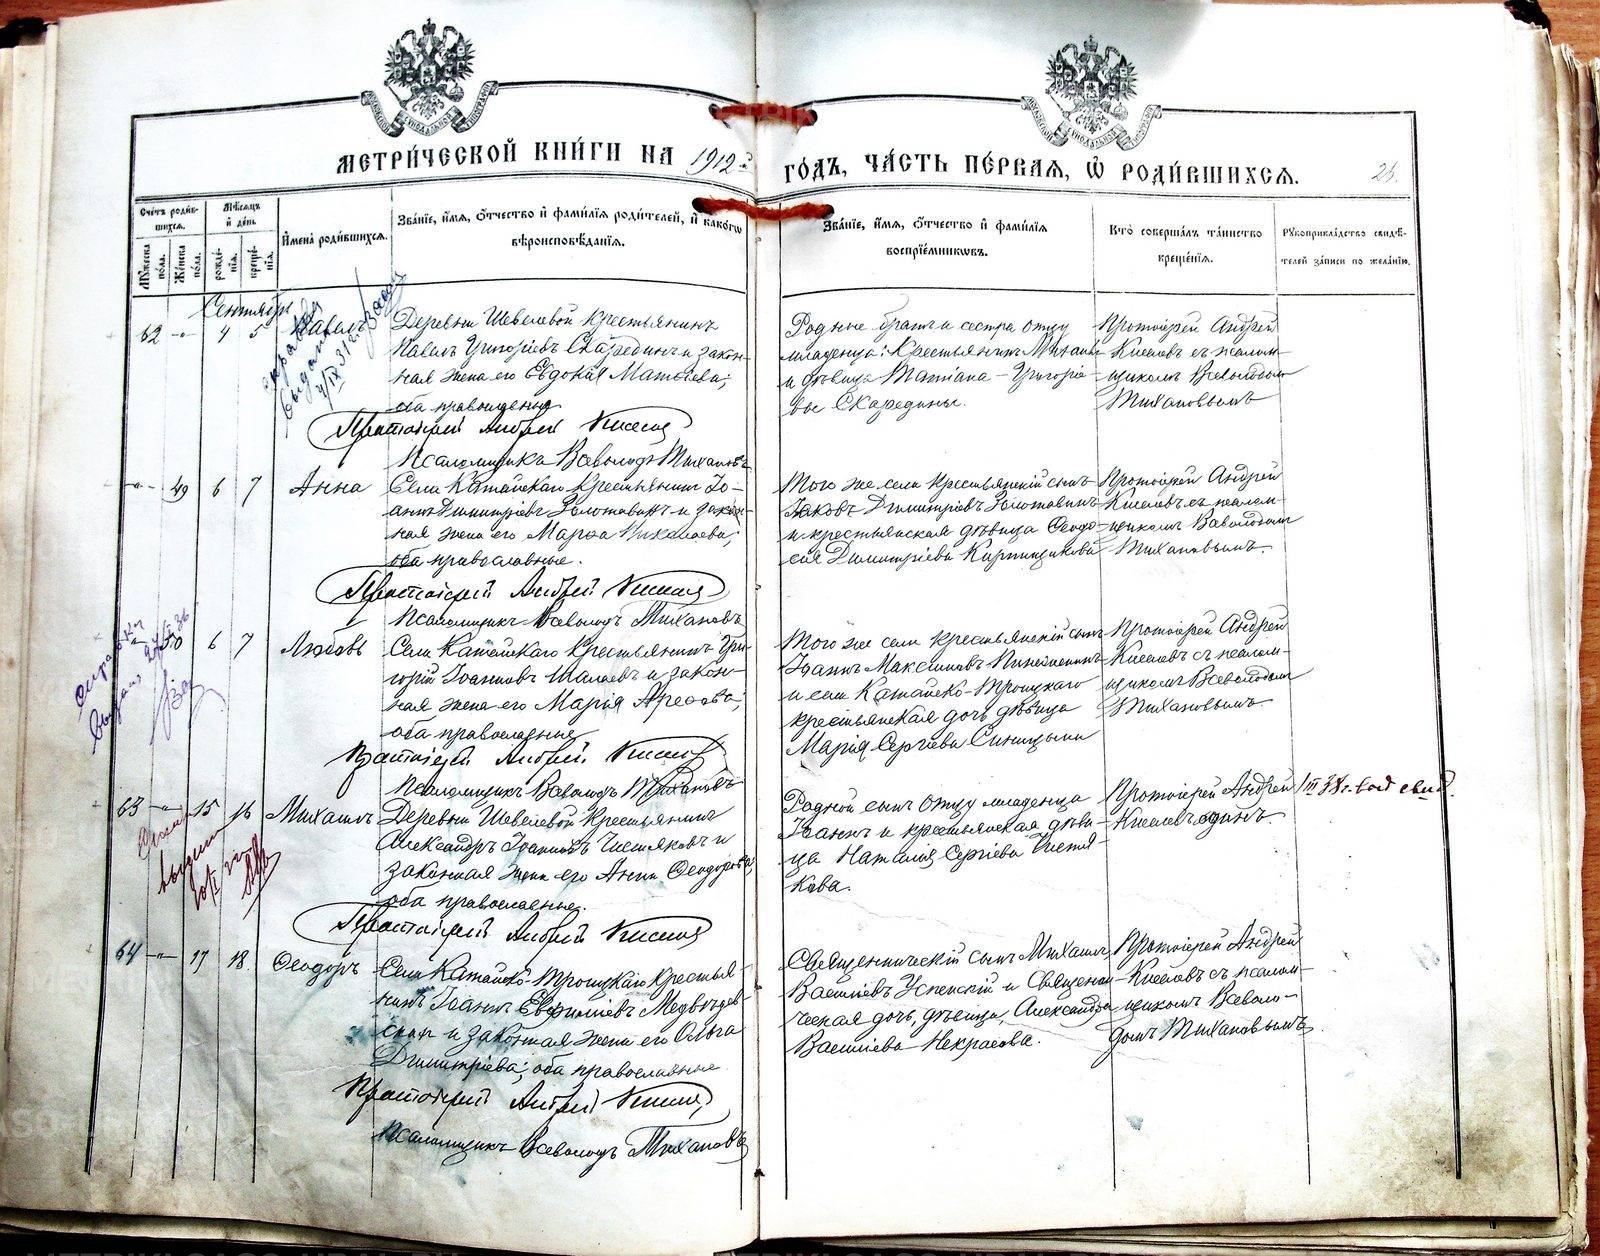 МЕТРИ́ЧЕСКОЙ КНИ́ГИ НА 1912й ГО́ДЪ, ЧА́СТЬ ПЕ́РВАѦ, Ѽ РОДИ́ВШИХСѦ.
26.
Сче́тъ роди́в-
шихсѧ.
Мꙋ́жеска по́ла.
Же́нска по́ла.
Мѣ́сѧцъ
и҆ де́нь
рожде́-
нїѧ.
креще́-
нїѧ.
И҆мена̀ роди́вшихсѧ.
Зва́нїе, и҆́мѧ, ѻ҆́тчество и҆ фами́лїѧ роди́телей, и҆ како́гѡ
вѣроисповѣ́данїѧ.
Зва́нїе, и҆́мѧ, ѻ҆́тчество и҆ фами́лїѧ
воспрїе́мникѡвъ.
Кто̀ соверша́лъ та́инство
креще́нїѧ.
Рꙋкоприкла́дство свидѣ́-
телей за́писи по жела́нїю.
Сентябрь
62 -"- 4 5 Павелъ
Деревни Шевелевой крестьянинъ
Павелъ Григорiевъ Скарединъ и закон-
ная жена его Евдокiя Матѳiева;
оба православные
Протоiерей Андрей Киселев
Псаломщикъ Всеволодъ Тихановъ
Родные братъ и сестра отцу
младенца: Крестьянинъ Михаилъ
и дѣвица Татiана Григорiе-
вы Скаредины.
Протоiерей Андрей
Киселевъ съ псалом-
щикомъ Всеволодомъ
Тихановымъ
справка
выдана
-"- 49 6 7 Анна
Села Катайскаго крестьянинъ Iо-
аннъ Димитрiевъ Золотавинъ и закон-
ная жена его Марѳа Николаева;
оба православные.
Протоiерей Андрей Киселев
Псаломщикъ Всеволодъ Тихановъ
Того же села крестьянскiй сынъ
Iаковъ Димитрiевъ Золотавинъ
и крестьянская дѣвица Ѳеодо-
сiя Димитрiева Кирпищикова
Протоiерей Андрей
Киселевъ съ псалом-
щикомъ Всеволодом
Тихановымъ.
справка
выдан
50 6 7 Любовь
Села Катайскаго крестьянинъ Гри-
горiй Iоанновъ Шалаевъ и закон-
ная жена его Марiя Ареѳова;
оба православные
Протоiерей Андрей Киселев
Псаломщикъ Всеволодъ Тихановъ
Того же села крестьянскiй сынъ
Iоаннъ Максимовъ
и села Катайско-Троицкаго
крестьянская дочь дѣвица
Марiя Сергiева Синицына
Протоiерей Андрей
Киселевъ съ псалом-
щикомъ Всеволодом
Тихановымъ.
63 -"- 15 16 Михаилъ
Деревни Шевелевой крестьянинъ
Александръ Iоанновъ Чистяковъ и
законная жена его Анна Ѳеодорова;
оба православные.
Протоiерей Андрей Киселев
Родной сынъ отцу младенца
Iоаннъ и крестьянская дѣви-
ца Наталiя Сергiева Чистя-
кова.
Протоiерей Андрей
Киселевъ одинъ.
выдан
64 -"- 17 18 Ѳеодоръ
Села Катайско-Троицкаго крестья-
нинъ Iоаннъ Евфимiевъ Медвѣдев-
скихъ и законная жена его Ольга
Димитрiева; оба православные
Протоiерей Андрей Киселев
Псаломщикъ Всеволодъ Тихановъ
Священническiй сынъ Михаилъ
Васильевъ Успенскiй и Священни-
ческая дочь, дѣвица, Александра
Васильева Некрасова.
Протоiерей Андрей
Киселевъ съ псалом-
щикомъ Всеволо-
домъ Тихановымъ